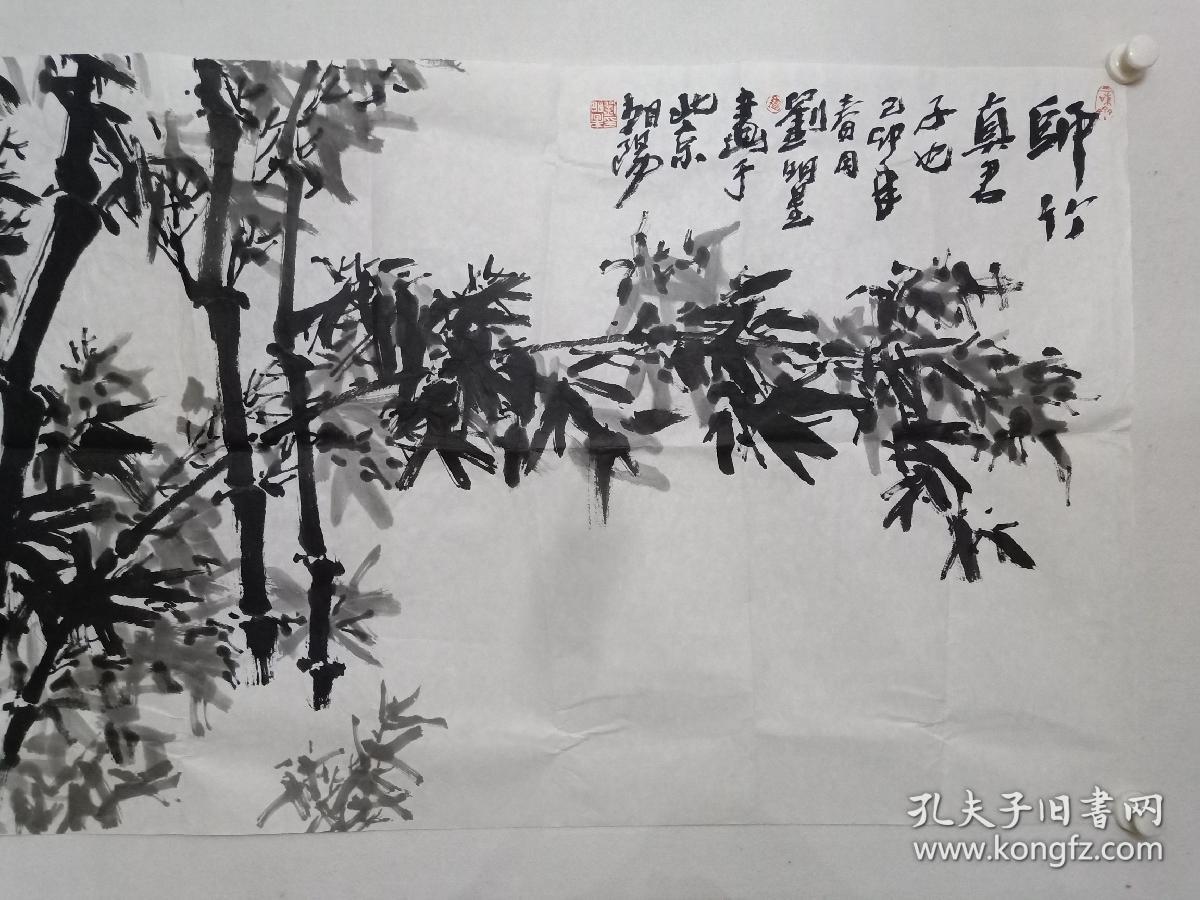 師竹
真君
子也
己卯年
春月
劉明星
畫于
北京
朝陽
孔夫子旧書网
www.kongfz.com